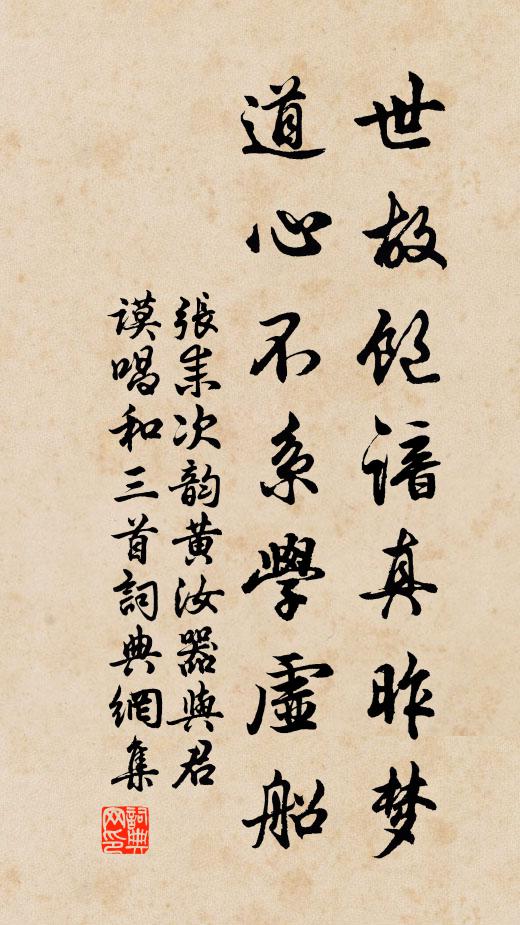 世故飽諳真昨梦
道心不系學虛船
張耒次韵黄汝器與君
謨唱和三首詞典網集
詞典
网印